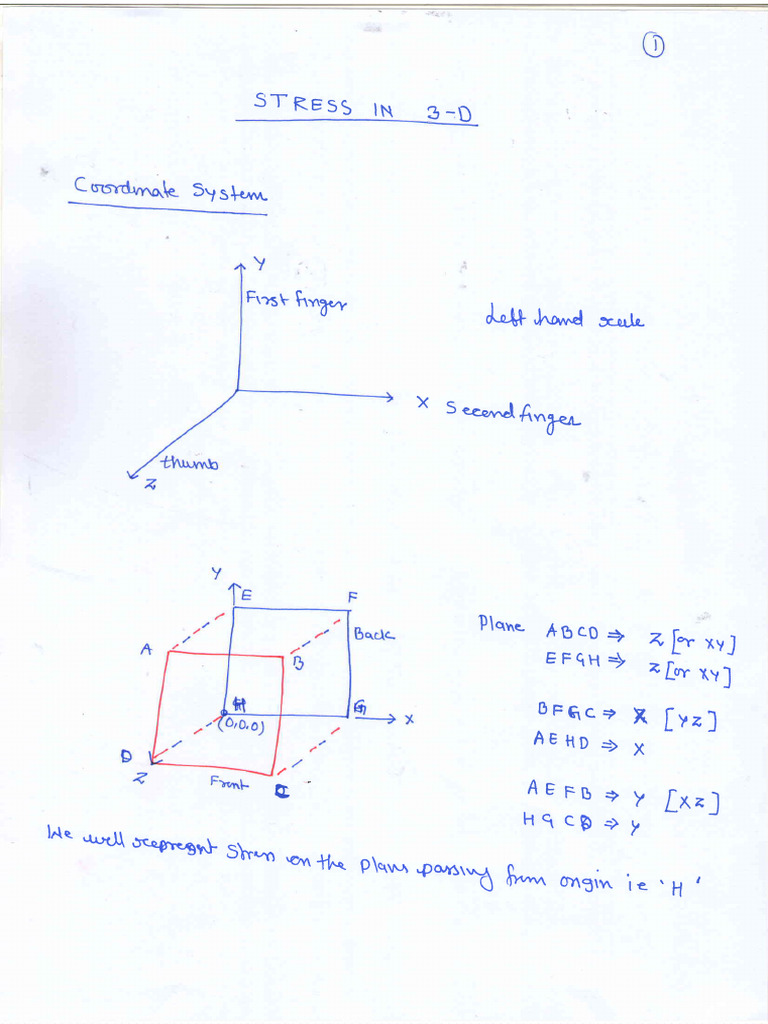 1
STRESS IN 3-D
Coordinate System
Y
First finger
Left hand rule
X Second finger
thumb
Z
Y
E
F
Back
A
B
H
G
X
(0,0,0)
D
Z
Front
C
Plane ABCD ⇒ Z [or XY]
EFGH ⇒ Z [or XY]
BFGC ⇒ X [YZ]
AEHD ⇒ X
AEFB ⇒ Y [XZ]
HGCD ⇒ Y
We will represent Stress on the plans passing from origin ie 'H'